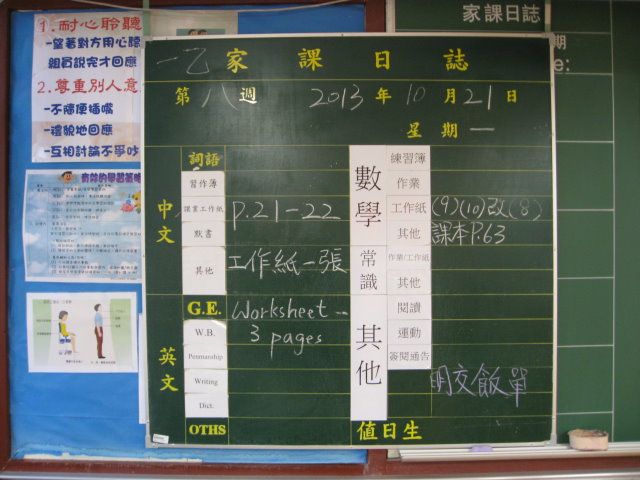 1.耐心聆聽
-望著對方用心聽
組員說完才回應
2.尊重別人意
-不隨便插嘴
-禮貌地回應
-互相討論不爭吵
家課日誌
期
e:
一乙家課日誌
第八週 2013年10月21日
星期一
中文
詞語
習作簿
課業工作紙 P.21-22
默書
其他 工作紙一張
英文
G.E. Worksheet --
3 pages
W.B.
Penmanship
Writing
Dict.
OTHS
數學
練習簿
作業
工作紙 (9)(10)改(8)
其他 課本P.63
常識
作業/工作紙
其他
其他
閱讀
運動
簽閱通告
明交飯單
值日生